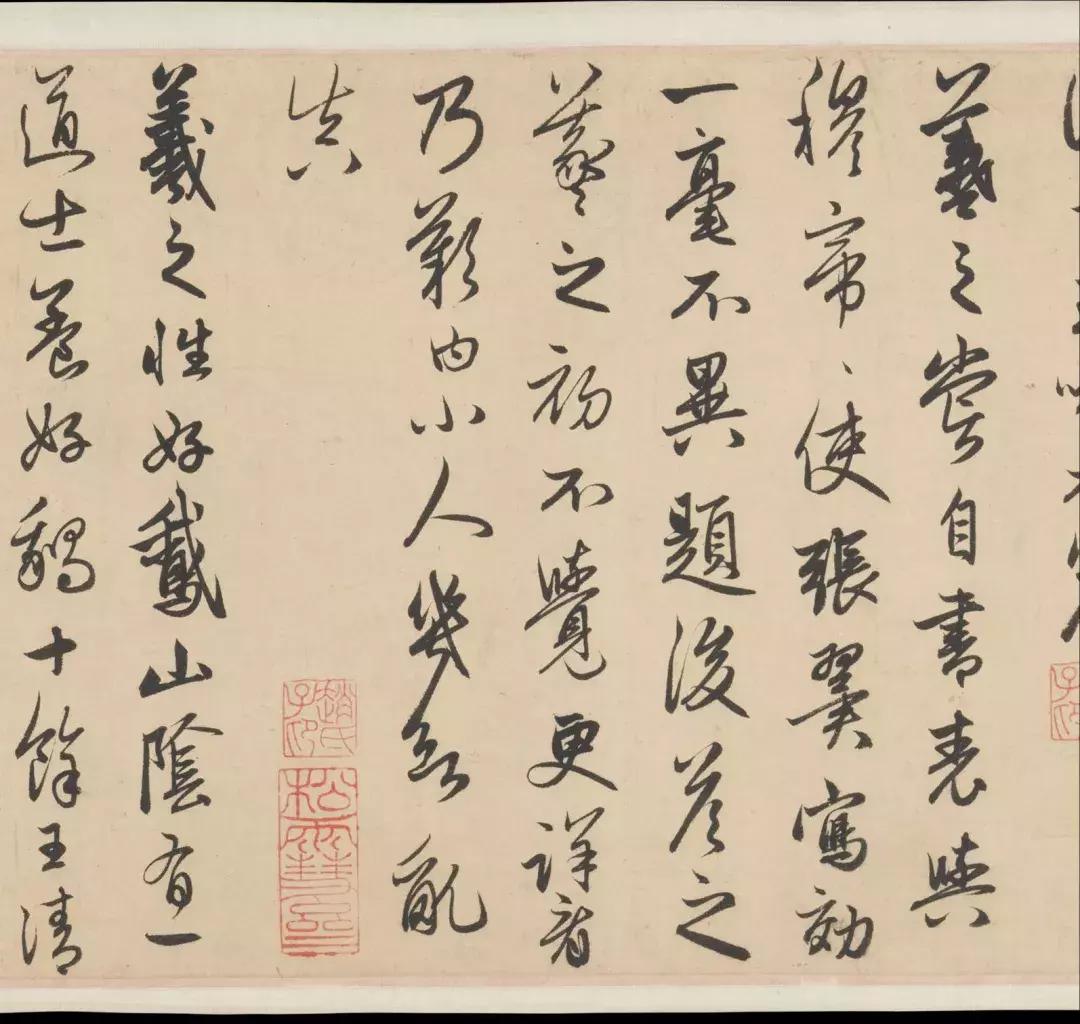 羲之嘗自書表與
穆帝、使張翼寫効
一毫不異題後答之
羲之初不覺更詳看
乃歎曰小人幾欲亂
真
趙氏子昂
羲之性好鵞山陰有一
道士養好鵝十餘王清